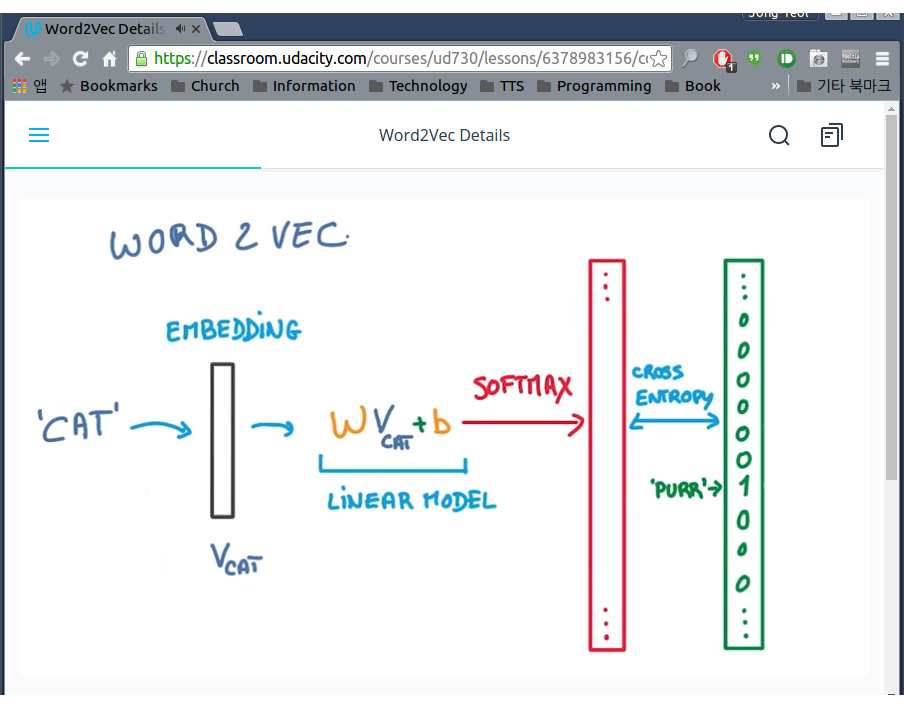 Word2Vec Details
https://classroom.udacity.com/courses/ud730/lessons/6378983156/c
앱 Bookmarks Church Information Technology TTS Programming Book » 기타 북마크
Word2Vec Details
WORD 2 VEC.
EMBEDDING
'CAT'
W V CAT + b
SOFTMAX
CROSS
ENTROPY
LINEAR MODEL
V CAT
'PURR'
⋮
⋮
⋮
0
0
0
0
0
0
1
0
0
0
⋮